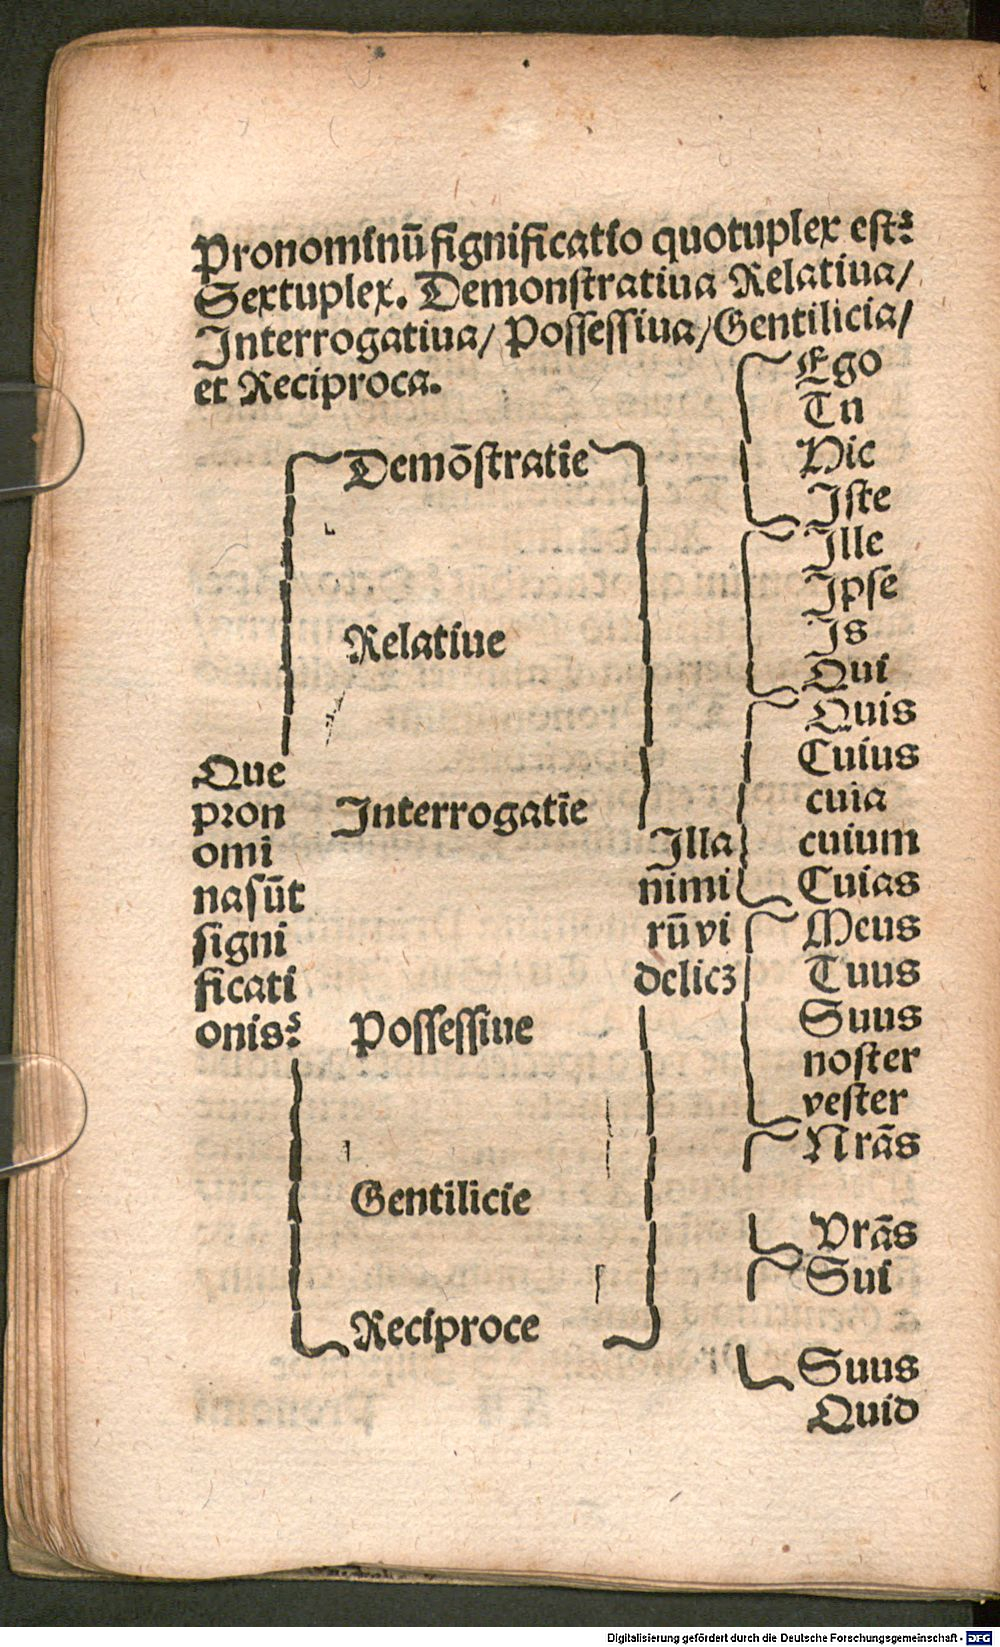 Pronominū significatio quotuplex est?
Sextuplex. Demonstratiua Relatiua/
Interrogatiua/ Possessiua/ Gentilicia/
et Reciproca.
Que
pron
omi
nasūt
signi
ficati
onis?
Demōstratie
Relatiue
Interrogatie
Possessiue
Gentilicie
Reciproce
Illa
nimi
rū vi
delicꝫ
Ego
Tu
Hic
Iste
Ille
Ipse
Is
Qui
Quis
Cuius
cuia
cuium
Cuias
Meus
Tuus
Suus
noster
vester
Nrās
Vrās
Sui
Suus
Quid
Digitalisierung gefördert durch die Deutsche Forschungsgemeinschaft - DFG